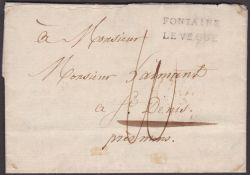 FONTAINE
LEVEQUE
à Monsieur
Monsieur
à St Denis
près mons
10